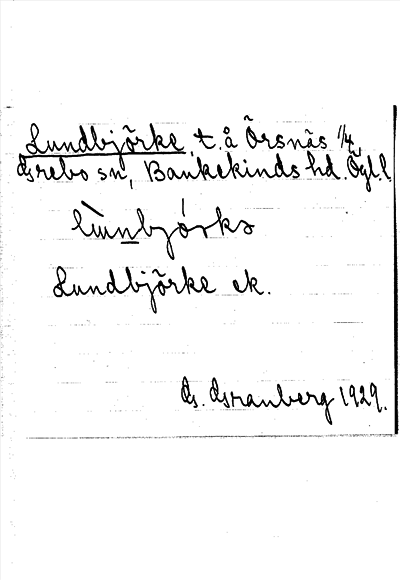 Lundbjörke, t. å Örsnäs 1/4,
Grebo sn, Bankekinds hd. Ögl.
lùnbjórks
Lundbjörke ek.
G. Granberg 1929.